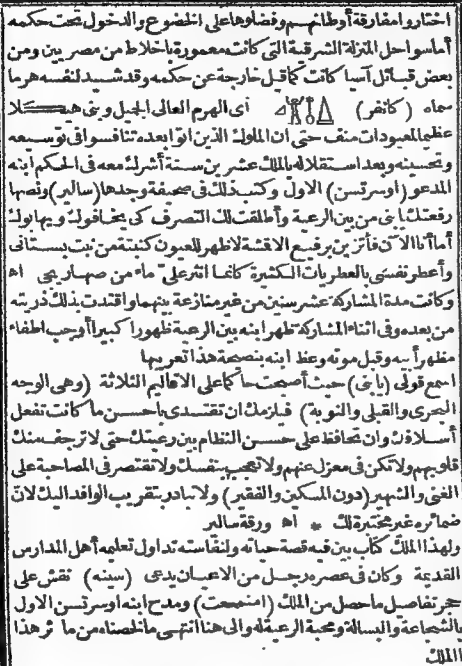 اختاروا مفارقة أوطانهم وفضلوها على الخضوع والدخول تحت حكمه
أما سواحل المنزلة الشرقية التى كانت معمورة باخلاط من مصريين ومن
بعض قبائل آسيا كانت كما قيل خارجة عن حكمه وقد شيد لنفسه هرما
سماه (كانفر) أى الهرم العالى الجميل وبنى هيكلا
عظيما لمعبودات منف حتى ان الملوك الذين اتوا بعده تنافسوا فى توسيعه
وتحسينه وبعد استقلاله بالملك عشرين سنة أشرك معه فى الحكم ابنه
المدعو (اوسرتسن) الاول وكتب ذلك فى صحيفة وجدها (سالير) ونصها
رفعتك يا بنى من بين الرعية وأطلقت لك التصرف كى يخافوك ويهابوك
أما أنا الآن فأتزين برفيع الاقشة لاظهر للعيون كنبتة من نبت بستانى
وأعطر نفسى بالعطريات الكثيرة كانما انثر على ماء من صهاريجى اه
وكانت مدة المشاركة عشر سنين من غير منازعة بينهما واقتدت بذلك ذريته
من بعده وفى اثناء المشاركة ظهر ابنه بين الرعية ظهورا كبيرا أوجب اطفاء
مظهر أبيه وقبل موته وعظ ابنه بنصيحة هذا تعريبها
اسمع قولى (يا بنى) حيث أصبحت حاكما على الاقاليم الثلاثة (وهى الوجه
البحرى والقبلى والنوبة) فيلزمك ان تقتدى باحسن ما كانت تفعل
أسلافك وان تحافظ على حسن النظام بين رعيتك حتى لا ترجف منك
قلوبهم ولا تكن فى معزل عنهم ولا تعجب بنفسك ولا تقتصر فى المصاحبة على
الغنى والشهير (دون المسكين والفقير) ولا تبادر بتقريب الوافد اليك لان
ضمائره غير مختبرة لك * اه ورقة سالير
ولهذا الملك كتاب بين فيه قصة حياته ولنفاسته تداول تعليمه أهل المدارس
القديمة وكان فى عصره رجل من الاعيان يدعى (سينه) نقش على
حجر تفاصيل ما حصل من الملك (امنمحعت) ومدح ابنه اوسرتسن الاول
بالشجاعة والبسالة ومحبة الرعية له والى هنا انتهى ما لخصناه من مآثر هذا
الملك